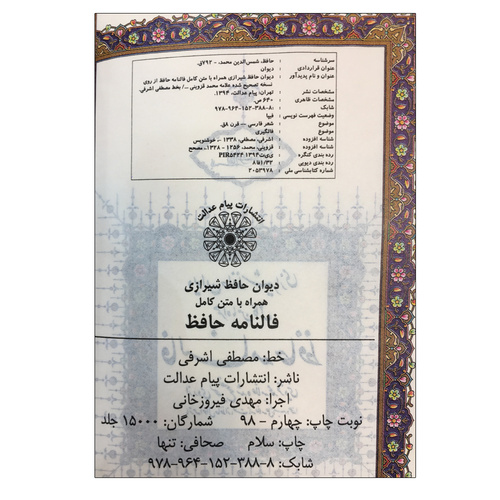 سرشناسه : حافظ، شمس‌الدین محمد، - ۷۹۲ق.
عنوان قراردادی : دیوان
عنوان و نام پدیدآور : دیوان حافظ شیرازی همراه با متن کامل فالنامه حافظ از روی
نسخه تصحیح شده علامه محمد قزوینی .../ بخط مصطفی اشرفی.
مشخصات نشر : تهران: پیام عدالت، ۱۳۹۴.
مشخصات ظاهری : ۶۴۰ ص.
شابک : ۹۷۸-۹۶۴-۱۵۲-۳۸۸-۸
وضعیت فهرست نویسی : فیپا
موضوع : شعر فارسی -- قرن ۸ق.
موضوع : فالگیری
شناسه افزوده : اشرفی، مصطفی، ۱۳۳۸ - ، خوشنویس
شناسه افزوده : قزوینی، محمد، ۱۲۵۶ - ۱۳۲۸.، مصحح
رده بندی کنگره : PIR۵۴۲۴ ۱۳۹۴
رده بندی دیویی : ۸فا۱/۳۲
شماره کتابشناسی ملی : ۲۰۵۳۹۷۸
انتشارات پیام عدالت
دیوان حافظ شیرازی
همراه با متن کامل
فالنامه حافظ
خط: مصطفی اشرفی
ناشر: انتشارات پیام عدالت
اجرا: مهدی فیروزخانی
نوبت چاپ: چهارم - ۹۸ شمارگان: ۱۵۰۰۰ جلد
چاپ: سلام صحافی: تنها
شابک: ۸-۳۸۸-۱۵۲-۹۶۴-۹۷۸